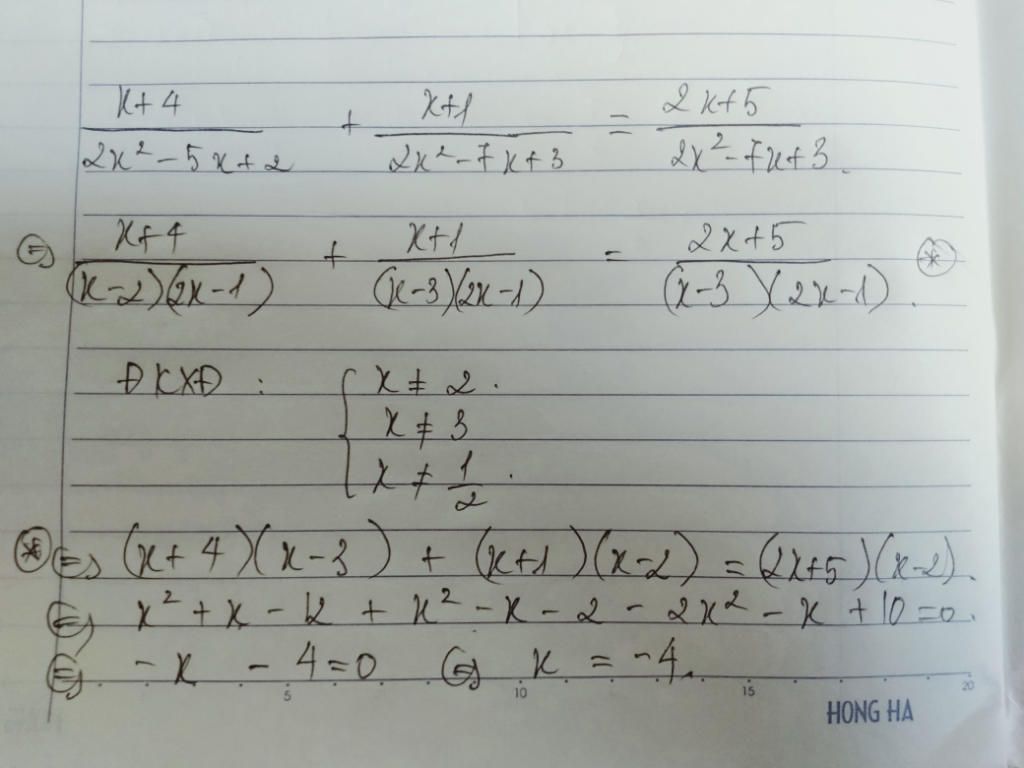 x+4 / 2x² - 5x + 2 + x+1 / 2x² - 7x + 3 = 2x+5 / 2x² - 7x + 3.
⇔ x+4 / (x-2)(2x-1) + x+1 / (x-3)(2x-1) = 2x+5 / (x-3)(2x-1). (*)
ĐKXĐ : { x ≠ 2.
x ≠ 3
x ≠ 1/2.
(*) ⇔ (x+4)(x-3) + (x+1)(x-2) = (2x+5)(x-2).
⇔ x² + x - 12 + x² - x - 2 - 2x² - x + 10 = 0.
⇔ -x - 4 = 0 ⇔ x = -4.
5 10 15 20
HONG HA